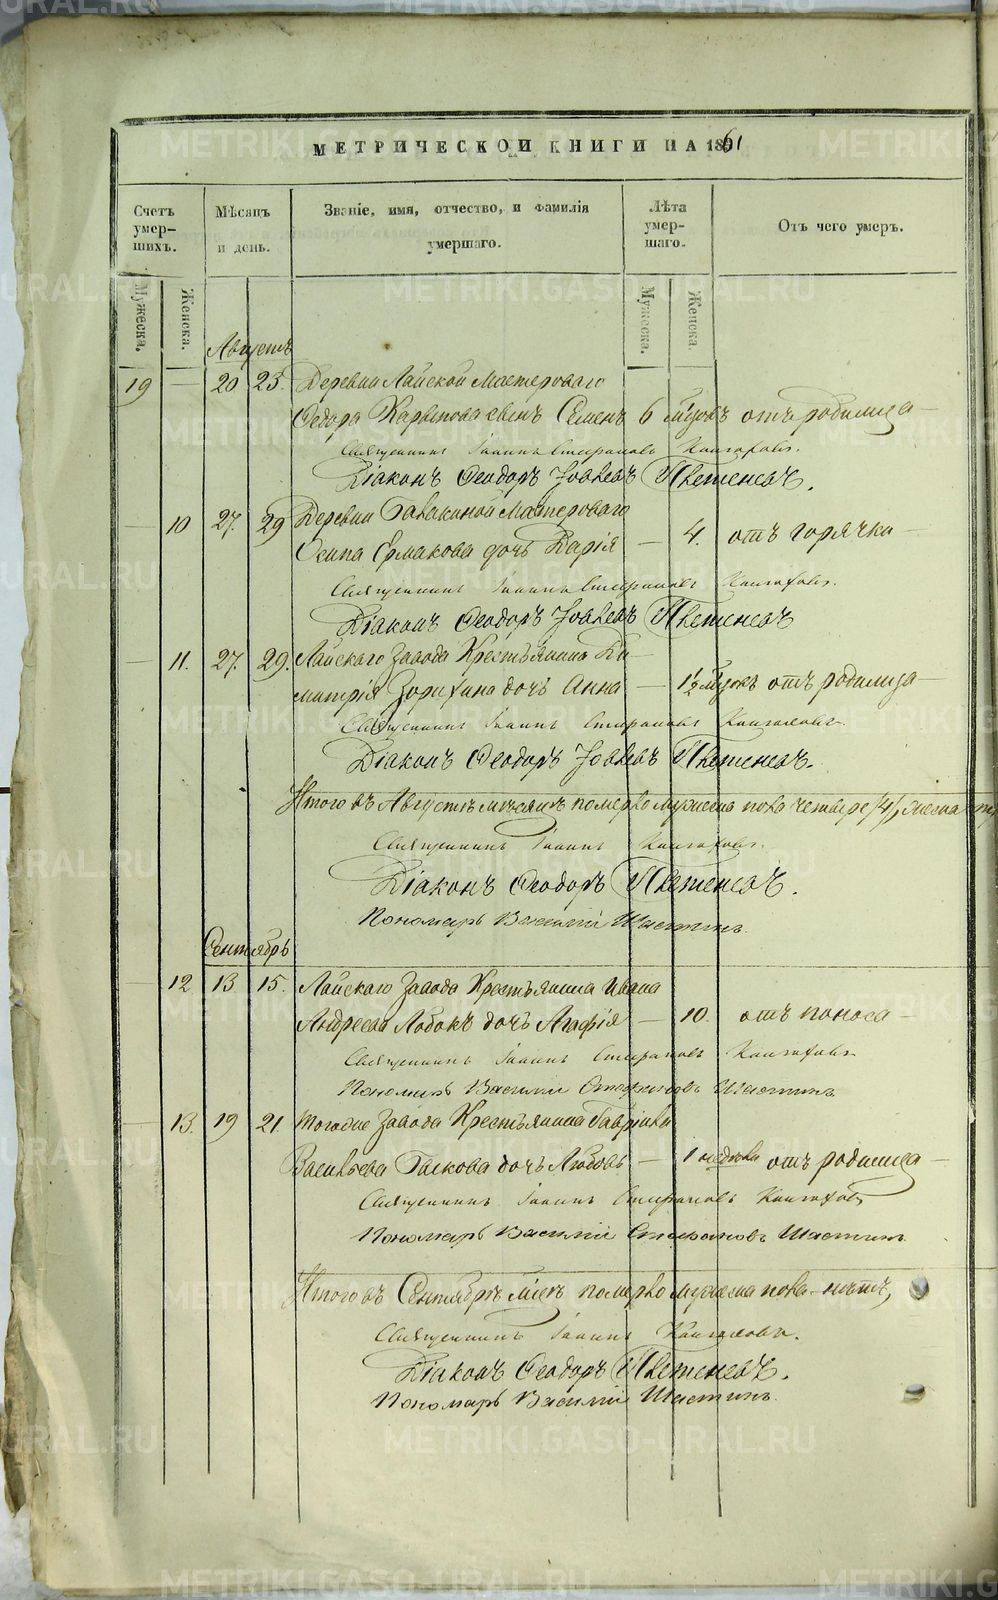 МЕТРИЧЕСКОЙ КНИГИ НА 1861
Счетъ умер-шихъ.
Мѣсяцъ и день.
Званіе, имя, отчество, и фамилія умершаго.
Лѣта умер-шаго.
Отъ чего умеръ.
Мужеска. Женска. Мужеска. Женска.
Августъ
19 — 20 23. Деревни Лайской Мастероваго
Федора сынъ Семенъ 6 отъ родимца —
Священникъ Іоаннъ Стефановъ
Діаконъ Феодоръ Іовлевъ
— 10 27. 29 Деревни Мастероваго
Осипа Ермакова дочь Дарія — 4. отъ горячка —
Священникъ Іоаннъ Стефановъ
Діаконъ Феодоръ Іовлевъ
— 11. 27. 29. Лайскаго Завода Крестьянина Ди-
митрія Зорихина дочь Анна — 1½ отъ родимца —
Священникъ Іоаннъ Стефановъ
Діаконъ Феодоръ Іовлевъ
Итого въ Августѣ мѣсяцѣ померло мужеска пола четыре /4/, женска
Священникъ Іоаннъ
Діаконъ Феодоръ
Пономарь Василій Шастинъ
Сентябрь
— 12 13 15. Лайскаго Завода Крестьянина Ивана
Андреева дочь Агафія — 10. отъ поноса —
Священникъ Іоаннъ Стефановъ
Пономарь Василій Стефановъ Шастинъ
— 13. 19 21. Тогоже Завода Крестьянина Гавріила
Васильева дочь Любовь — 1 недѣля отъ родимца —
Священникъ Іоаннъ Стефановъ
Пономарь Василій Стефановъ Шастинъ
Итого въ Сентябрѣ м-цѣ померло мужеска пола — нѣтъ,
Священникъ Іоаннъ
Діаконъ Феодоръ
Пономарь Василій Шастинъ
METRIKI.GASO-URAL.RU